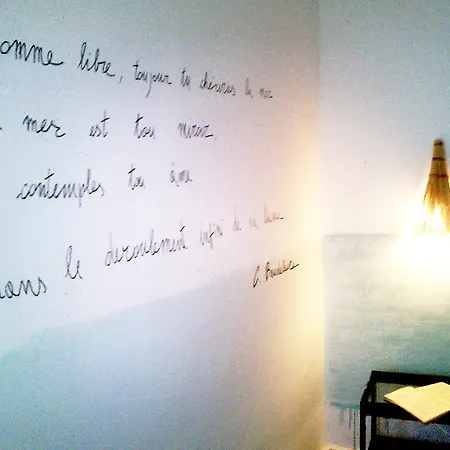 omme libre, toujour tu chériras la mer
mer est ton miroir.
contemples ton âme
ans le deroulement infini de sa lame
C. Baudelaire